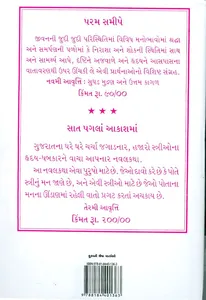 પરમ સમીપે
જીવનની જુદી જુદી પરિસ્થિતિમાં વિવિધ મનોભાવોમાં શ્રદ્ધા
અને સમર્પણની પળોમાં કે નિરાશા અને શોકની સ્થિતિમાં સાથ
અને સામર્થ્ય આપે, દૃષ્ટિને અજવાળે અને હૃદયને આસપાસના
વાતાવરણથી ઉપર ઊંચકી લે એવી પ્રાર્થનાઓનો વિશિષ્ટ સંગ્રહ.
નવમી આવૃત્તિ : સુઘડ મુદ્રણ અને ઉત્તમ કાગળ
કિંમત રૂ. ૯૦/૦૦
સાત પગલાં આકાશમાં
ગુજરાતના ઘરે ઘરે ચર્ચા જગાડનાર, હજારો સ્ત્રીઓના
હૃદય-ધબકારને વાચા આપનાર નવલકથા.
આ નવલકથા એવા પુરુષો માટે છે, જેઓ દાવો કરે છે કે પોતે
સ્ત્રીનું મન જાણે છે, અને એવી સ્ત્રીઓ માટે છે જેઓ પોતાના
મનના ઊંડાણમાં રહેલી વાતો પ્રગટ કરતાં અચકાય છે.
તેરમી આવૃત્તિ
કિંમત રૂ. ૨૦૦/૦૦